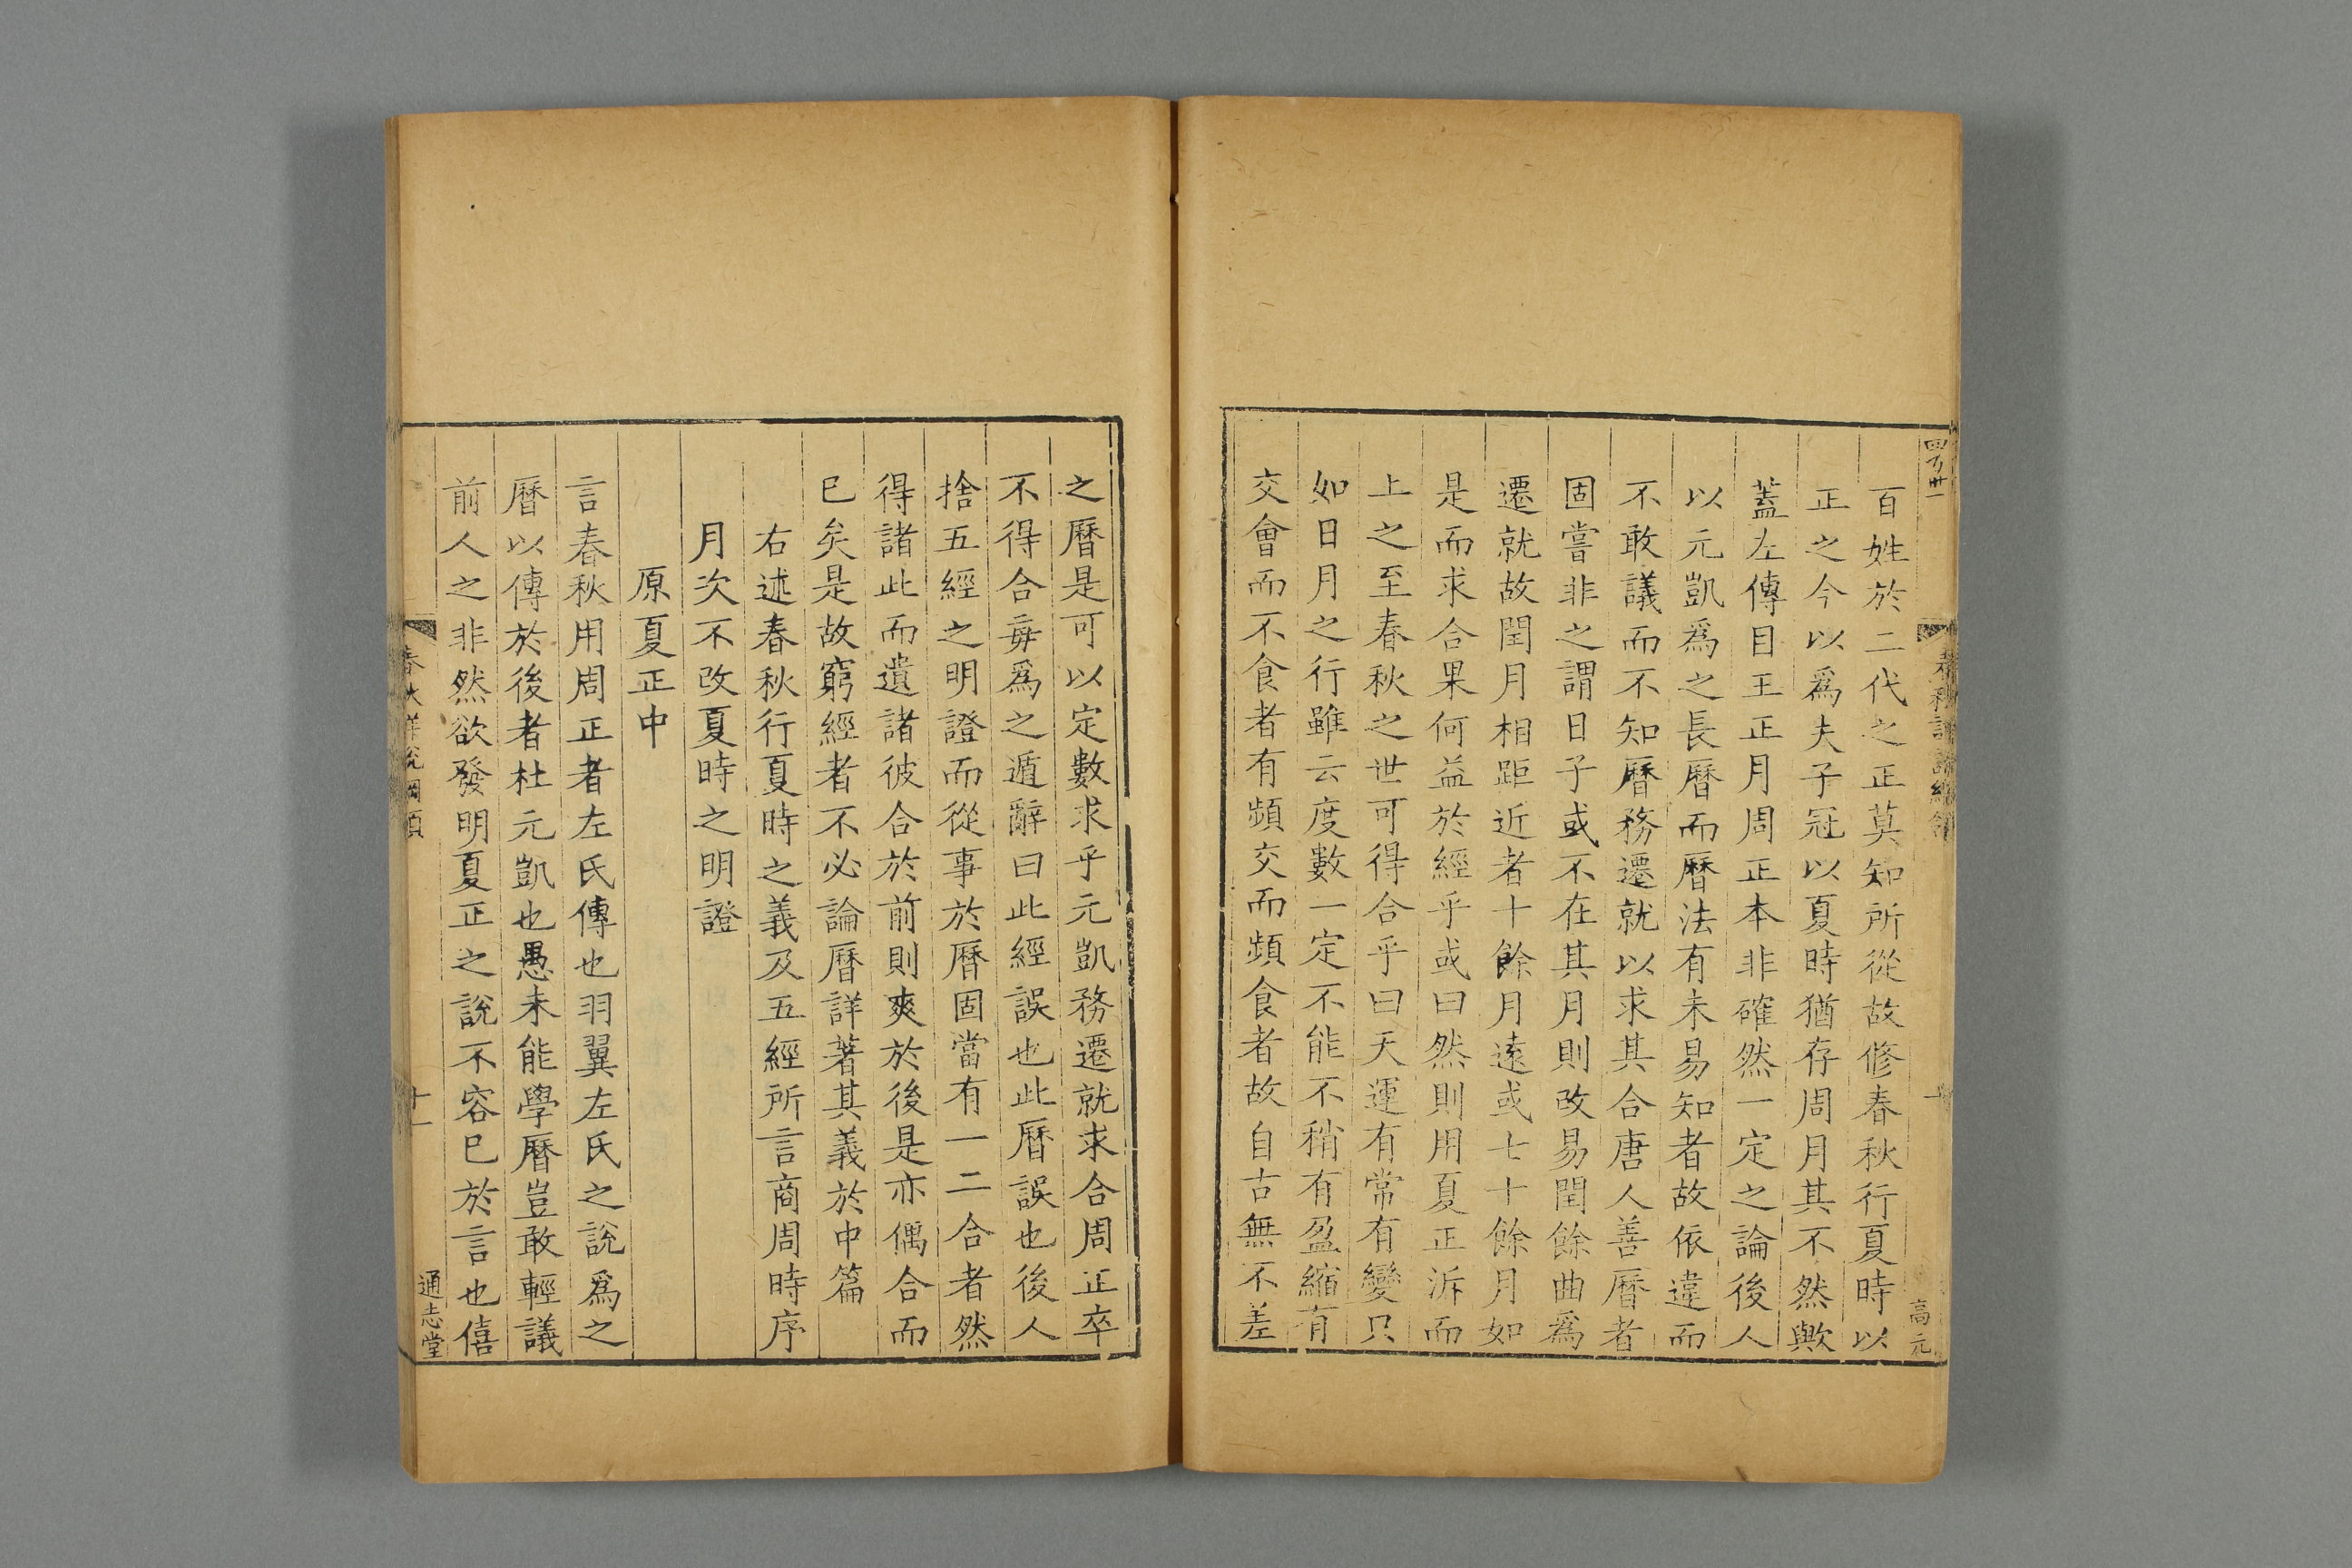 百姓於二代之正莫知所從故修春秋行夏時以
正之今以爲夫子冠以夏時猶存周月其不然歟
蓋左傳目王正月周正本非確然一定之論後人
以元凱爲之長曆而曆法有未易知者故依違而
不敢議而不知曆務遷就以求其合唐人善曆者
固嘗非之謂日子或不在其月則改易閏餘曲爲
遷就故閏月相距近者十餘月遠或七十餘月如
是而求合果何益於經乎或曰然則用夏正泝而
上之至春秋之世可得合乎曰天運有常有變只
如日月之行雖云度數一定不能不稍有盈縮有
交會而不食者有頻交而頻食者故自古無不差
高元
之曆是可以定數求乎元凱務遷就求合周正卒
不得合毎爲之遁辭曰此經誤也此曆誤也後人
捨五經之明證而從事於曆固當有一二合者然
得諸此而遺諸彼合於前則爽於後是亦偶合而
已矣是故窮經者不必論曆詳著其義於中篇
右述春秋行夏時之義及五經所言商周時序
月次不改夏時之明證
原夏正中
言春秋用周正者左氏傳也羽翼左氏之說爲之
曆以傳於後者杜元凱也愚未能學曆豈敢輕議
前人之非然欲發明夏正之說不容已於言也僖
春秋詳說綱領
十一
通志堂